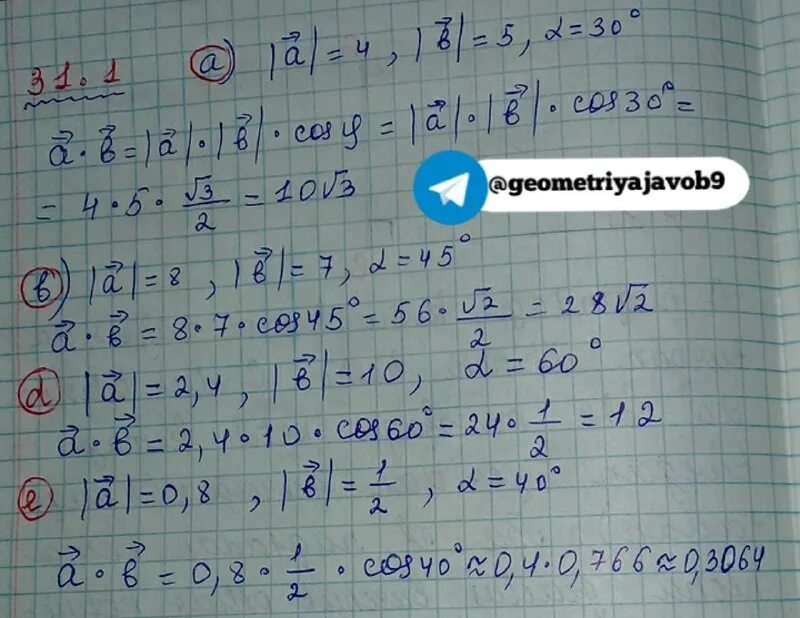 31.1 a) |a⃗| = 4 , |b⃗| = 5 , α = 30°
a⃗ · b⃗ = |a⃗| · |b⃗| · cos φ = |a⃗| · |b⃗| · cos 30° =
= 4 · 5 · √3/2 = 10√3
@geometriyajavob9
b) |a⃗| = 8 , |b⃗| = 7 , α = 45°
a⃗ · b⃗ = 8 · 7 · cos 45° = 56 · √2/2 = 28√2
d) |a⃗| = 2,4 , |b⃗| = 10 , α = 60°
a⃗ · b⃗ = 2,4 · 10 · cos 60° = 24 · 1/2 = 12
e) |a⃗| = 0,8 , |b⃗| = 1/2 , α = 40°
a⃗ · b⃗ = 0,8 · 1/2 · cos 40° ≈ 0,4 · 0,766 ≈ 0,3064